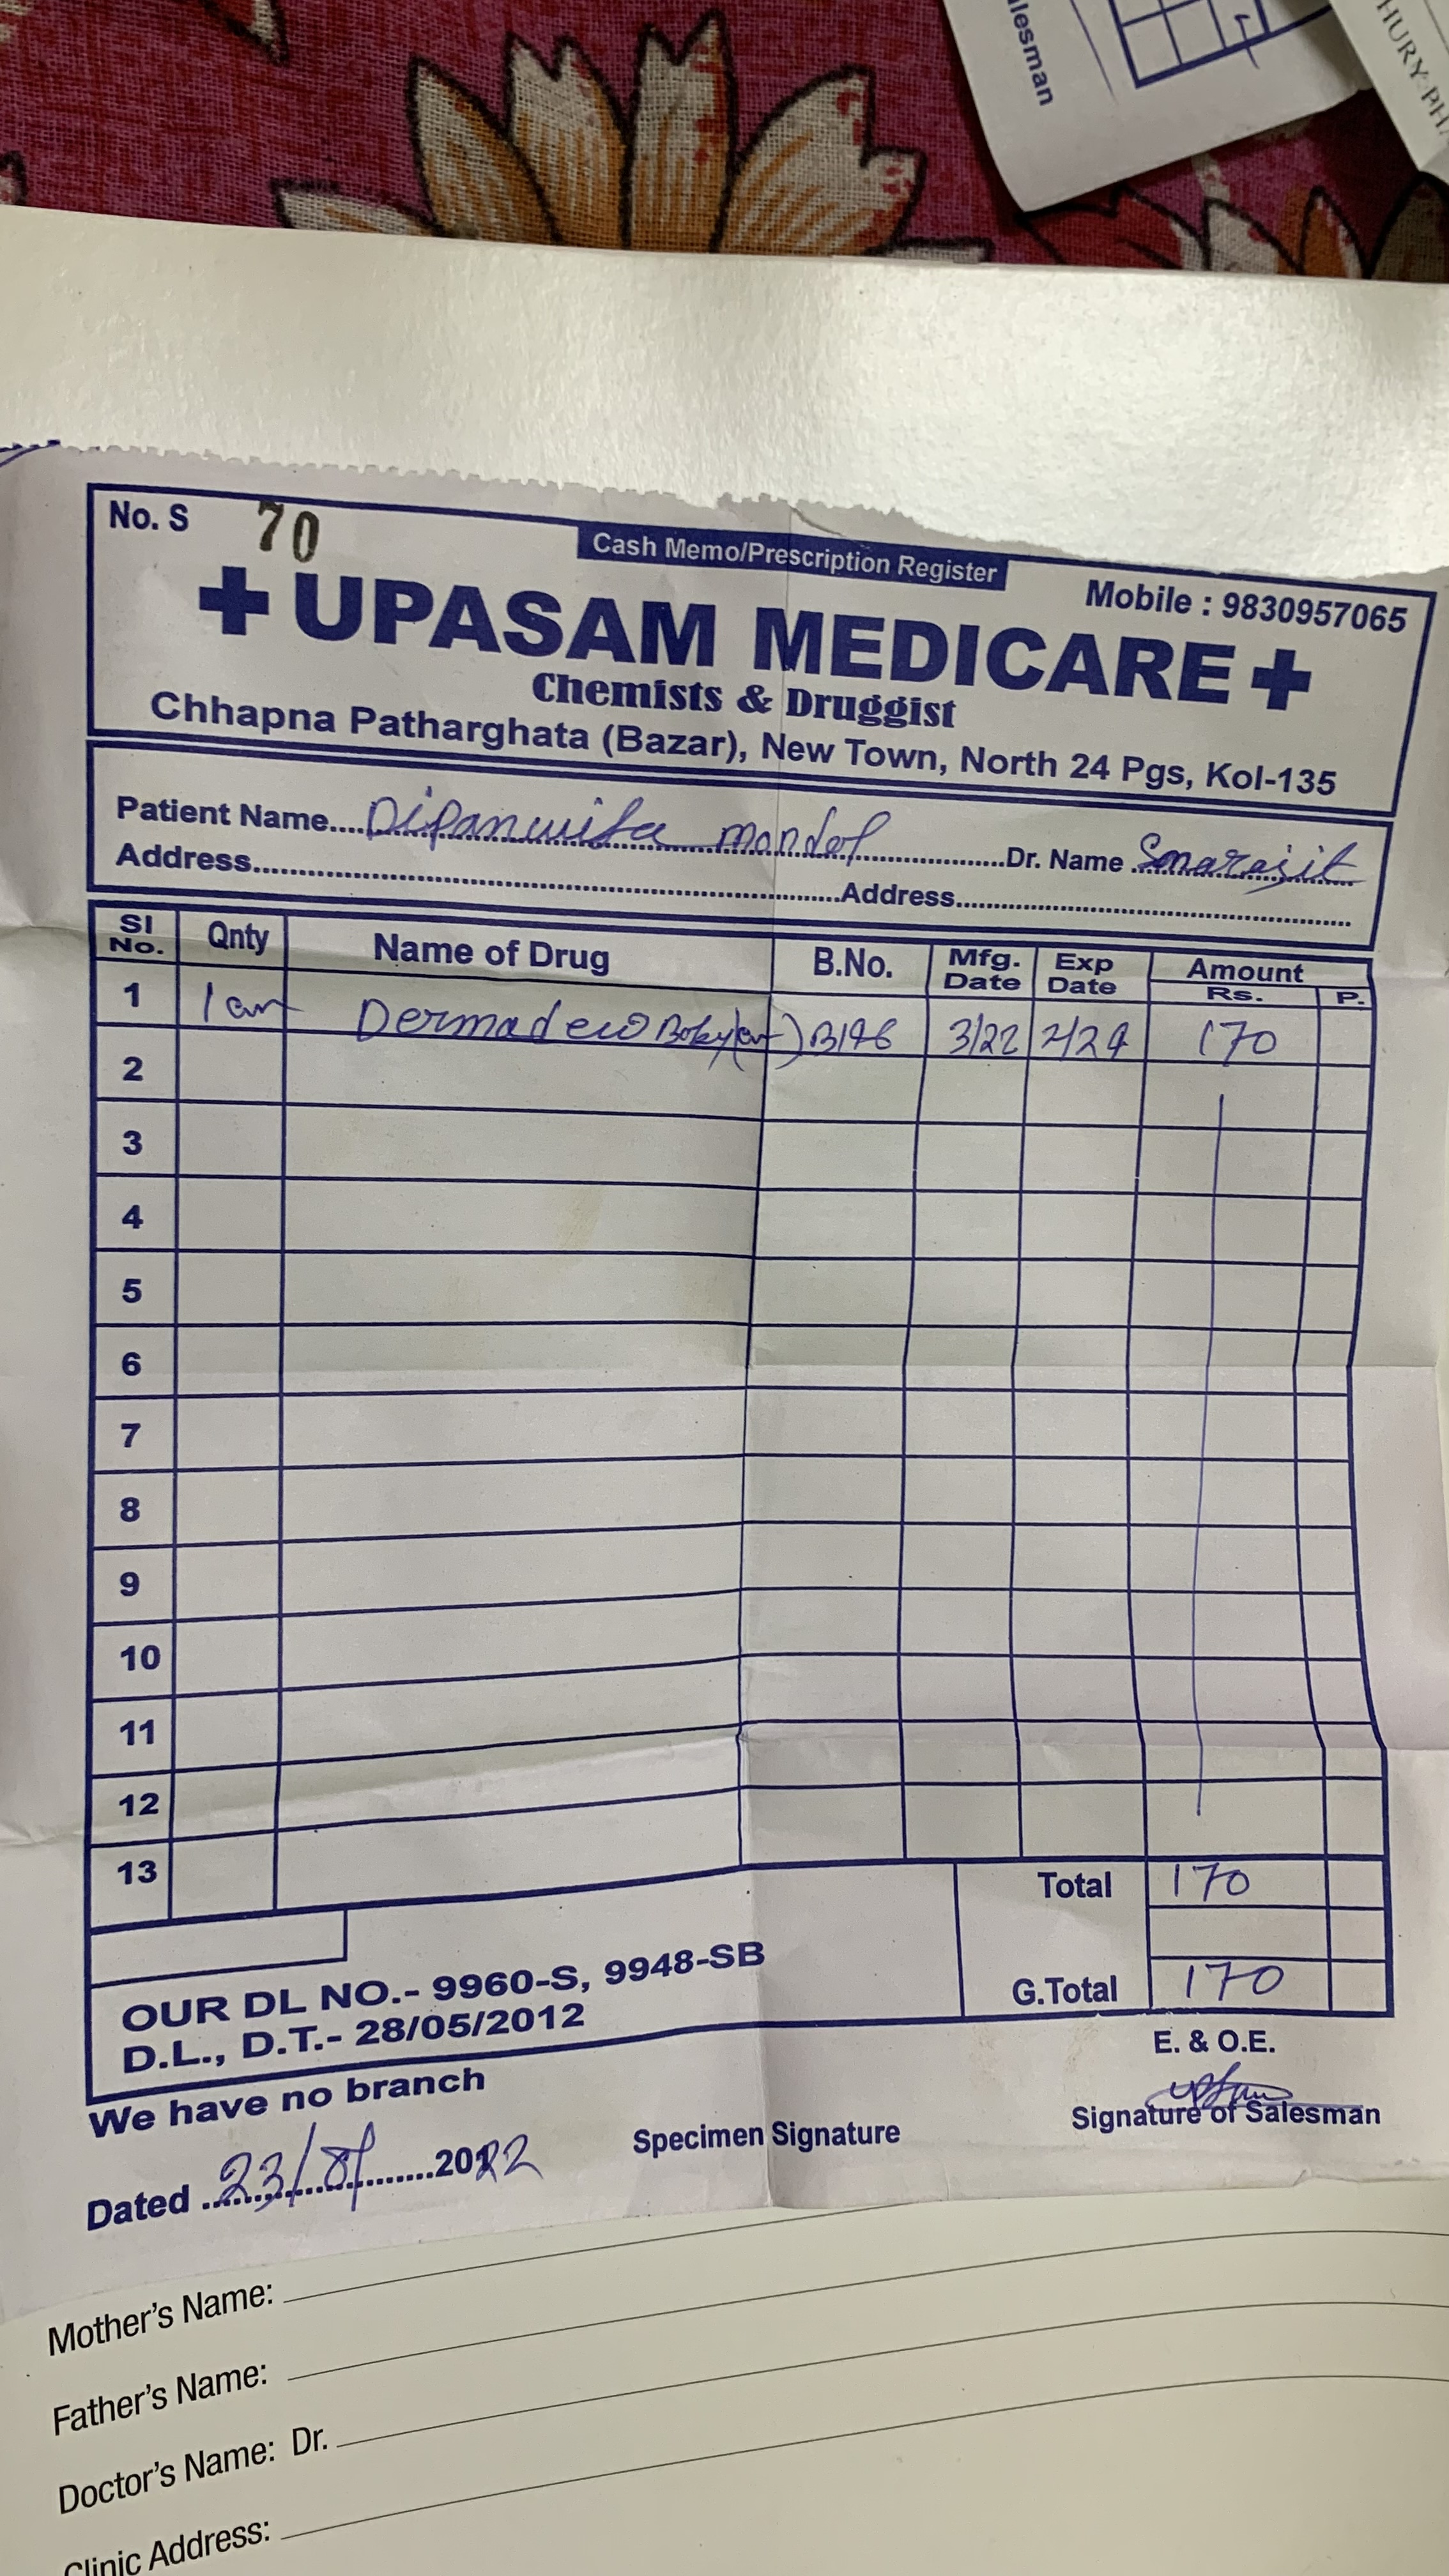 lesman
HURY PH
No. S 70
Cash Memo/Prescription Register
Mobile : 9830957065
UPASAM MEDICARE
Chemists & Druggist
Chhapna Patharghata (Bazar), New Town, North 24 Pgs, Kol-135
Patient Name.... Dipanwita mondal Dr. Name Smarajit
Address Address
Sl No. Qnty Name of Drug B.No. Mfg. Date Exp Date Amount Rs. P.
1 1 Dermadew Baby 3/22 2/24 170
2
3
4
5
6
7
8
9
10
11
12
13
Total 170
G.Total 170
OUR DL NO.- 9960-S, 9948-SB
D.L., D.T.- 28/05/2012
E. & O.E.
We have no branch
Specimen Signature
Signature of Salesman
Dated 23/8/ 2022
Mother's Name:
Father's Name:
Doctor's Name: Dr.
Clinic Address: